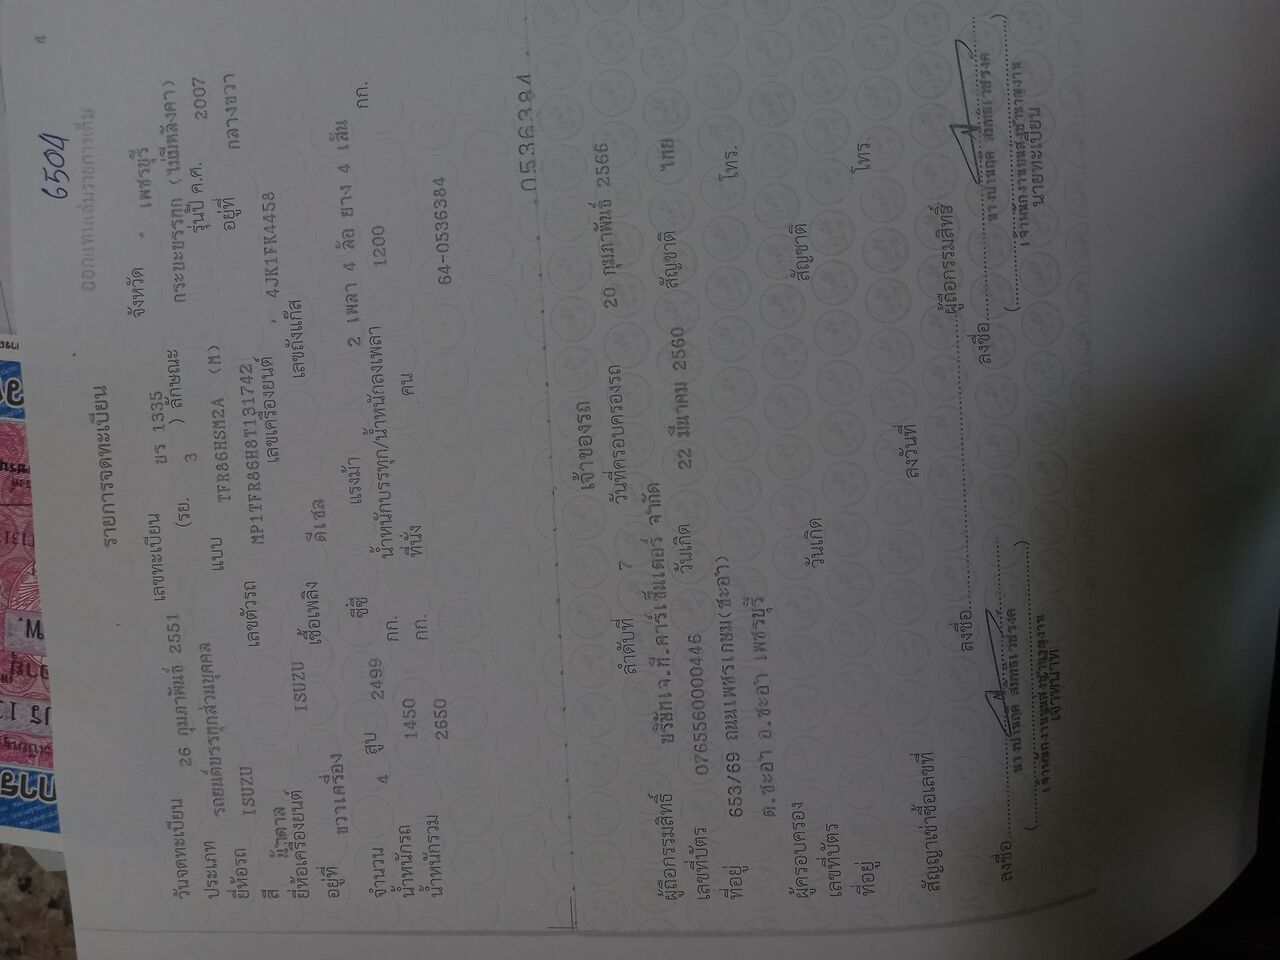 4
ออกแทนเล่มรายการเต็ม
6504
รายการจดทะเบียน
วันจดทะเบียน 26 กุมภาพันธ์ 2551 เลขทะเบียน บร 1335 จังหวัด เพชรบุรี
ประเภท รถยนต์บรรทุกส่วนบุคคล (รย. 3 ) ลักษณะ กระบะบรรทุก (ไม่มีหลังคา)
ยี่ห้อรถ ISUZU แบบ TFR86HSM2A (M) รุ่นปี ค.ศ. 2007
สี น้ำตาล เลขตัวรถ MP1TFR86H8T131742 อยู่ที่ กลางขวา
ยี่ห้อเครื่องยนต์ ISUZU เลขเครื่องยนต์ 4JK1FK4458
อยู่ที่ ขวาเครื่อง เชื้อเพลิง ดีเซล เลขถังแก๊ส
จำนวน 4 สูบ 2499 ซีซี แรงม้า 2 เพลา 4 ล้อ ยาง 4 เส้น
น้ำหนักรถ 1450 กก. น้ำหนักบรรทุก/น้ำหนักลงเพลา 1200 กก.
น้ำหนักรวม 2650 กก. ที่นั่ง คน
64-0536384
0536384
เจ้าของรถ
ลำดับที่ 7 วันที่ครอบครองรถ 20 กุมภาพันธ์ 2566
ผู้ถือกรรมสิทธิ์ บริษัทเจ.ที.คาร์เซ็นเตอร์ จำกัด
เลขที่บัตร 0765560000446 วันเกิด 22 มีนาคม 2560 สัญชาติ ไทย
ที่อยู่ 653/69 ถนนเพชรเกษม(ชะอำ) โทร.
ต.ชะอำ อ.ชะอำ เพชรบุรี
ผู้ครอบครอง
เลขที่บัตร วันเกิด สัญชาติ
ที่อยู่ โทร.
สัญญาเช่าซื้อเลขที่ ลงวันที่
ลงชื่อ ผู้ถือกรรมสิทธิ์
ลงชื่อ ลงชื่อ
เจ้าหน้าที่ นายทะเบียน